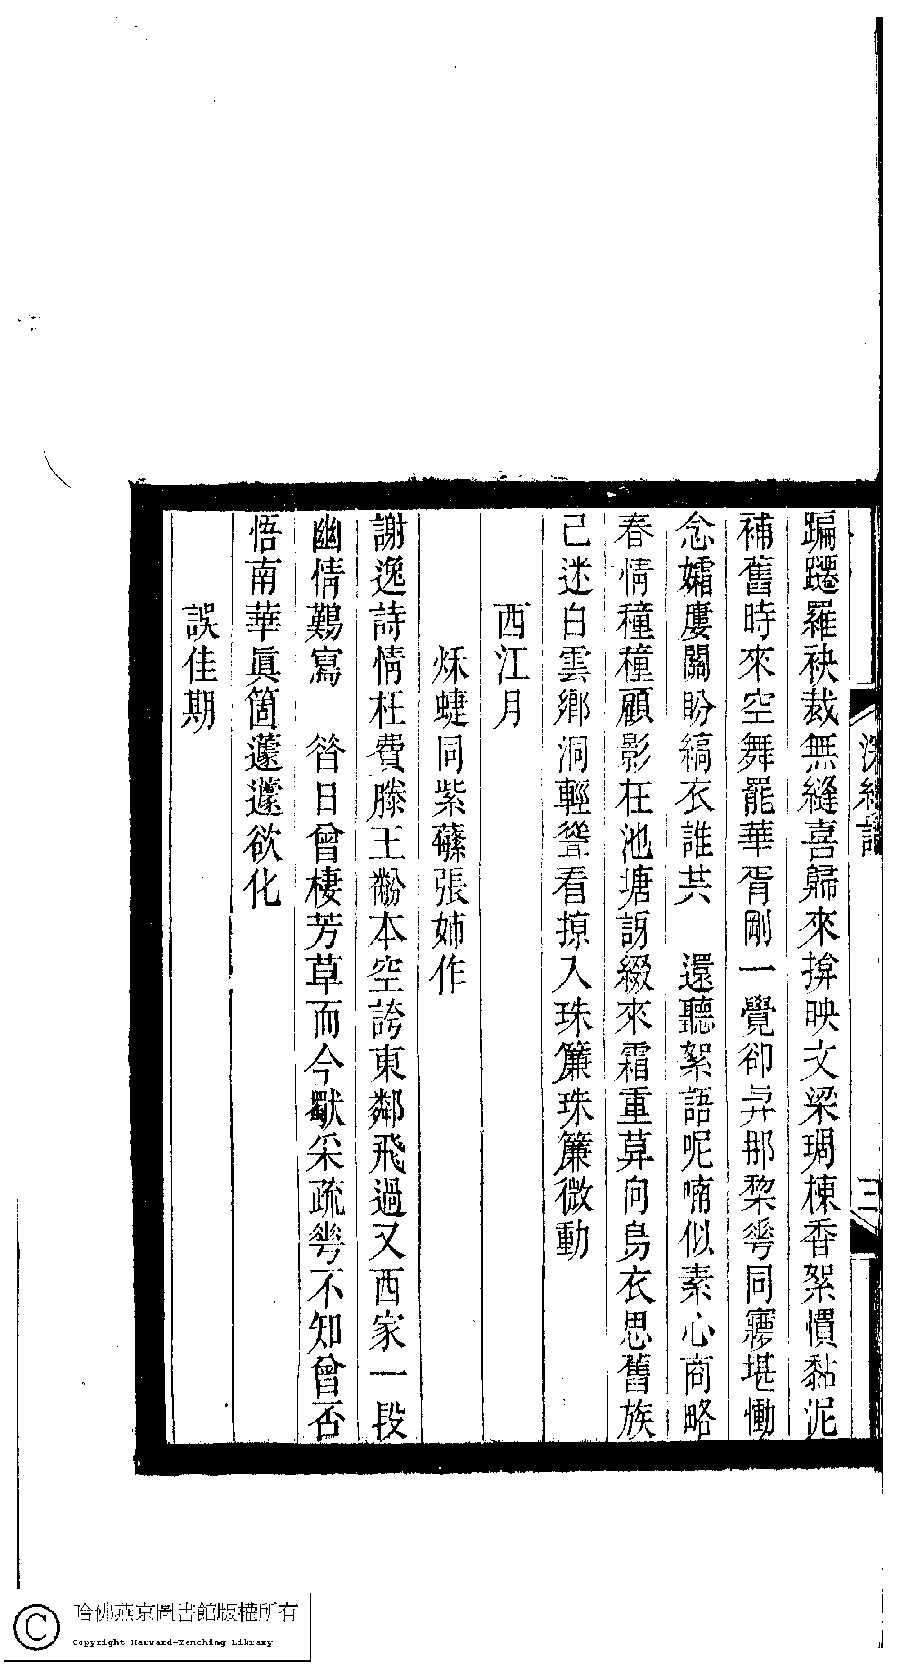 蹁躚羅袂裁無縫喜歸來揜映文梁琱棟香絮慣黏泥
補舊時來空舞罷華胥剛一覺卻與那棃雩同寱堪慟
念孀廔關盼縞衣誰共　還聽絮語呢喃似素心商略
春情穜穜顧影在池塘訝綴來霜重莫向烏衣思舊族
已迷白雲鄉洞輕聳看掠入珠簾珠簾微動
西江月
秌蜨同紫蘤張姊作
謝逸詩情枉費滕王粉本空誇東鄰飛過又西家一段
幽情難寫　昝日曾棲芳草而今猒采疏雩不知曾否
悟南華眞箇蘧蘧欲化
誤佳期
三
哈佛燕京圖書館版權所有
Copyright Harvard-Yenching Library